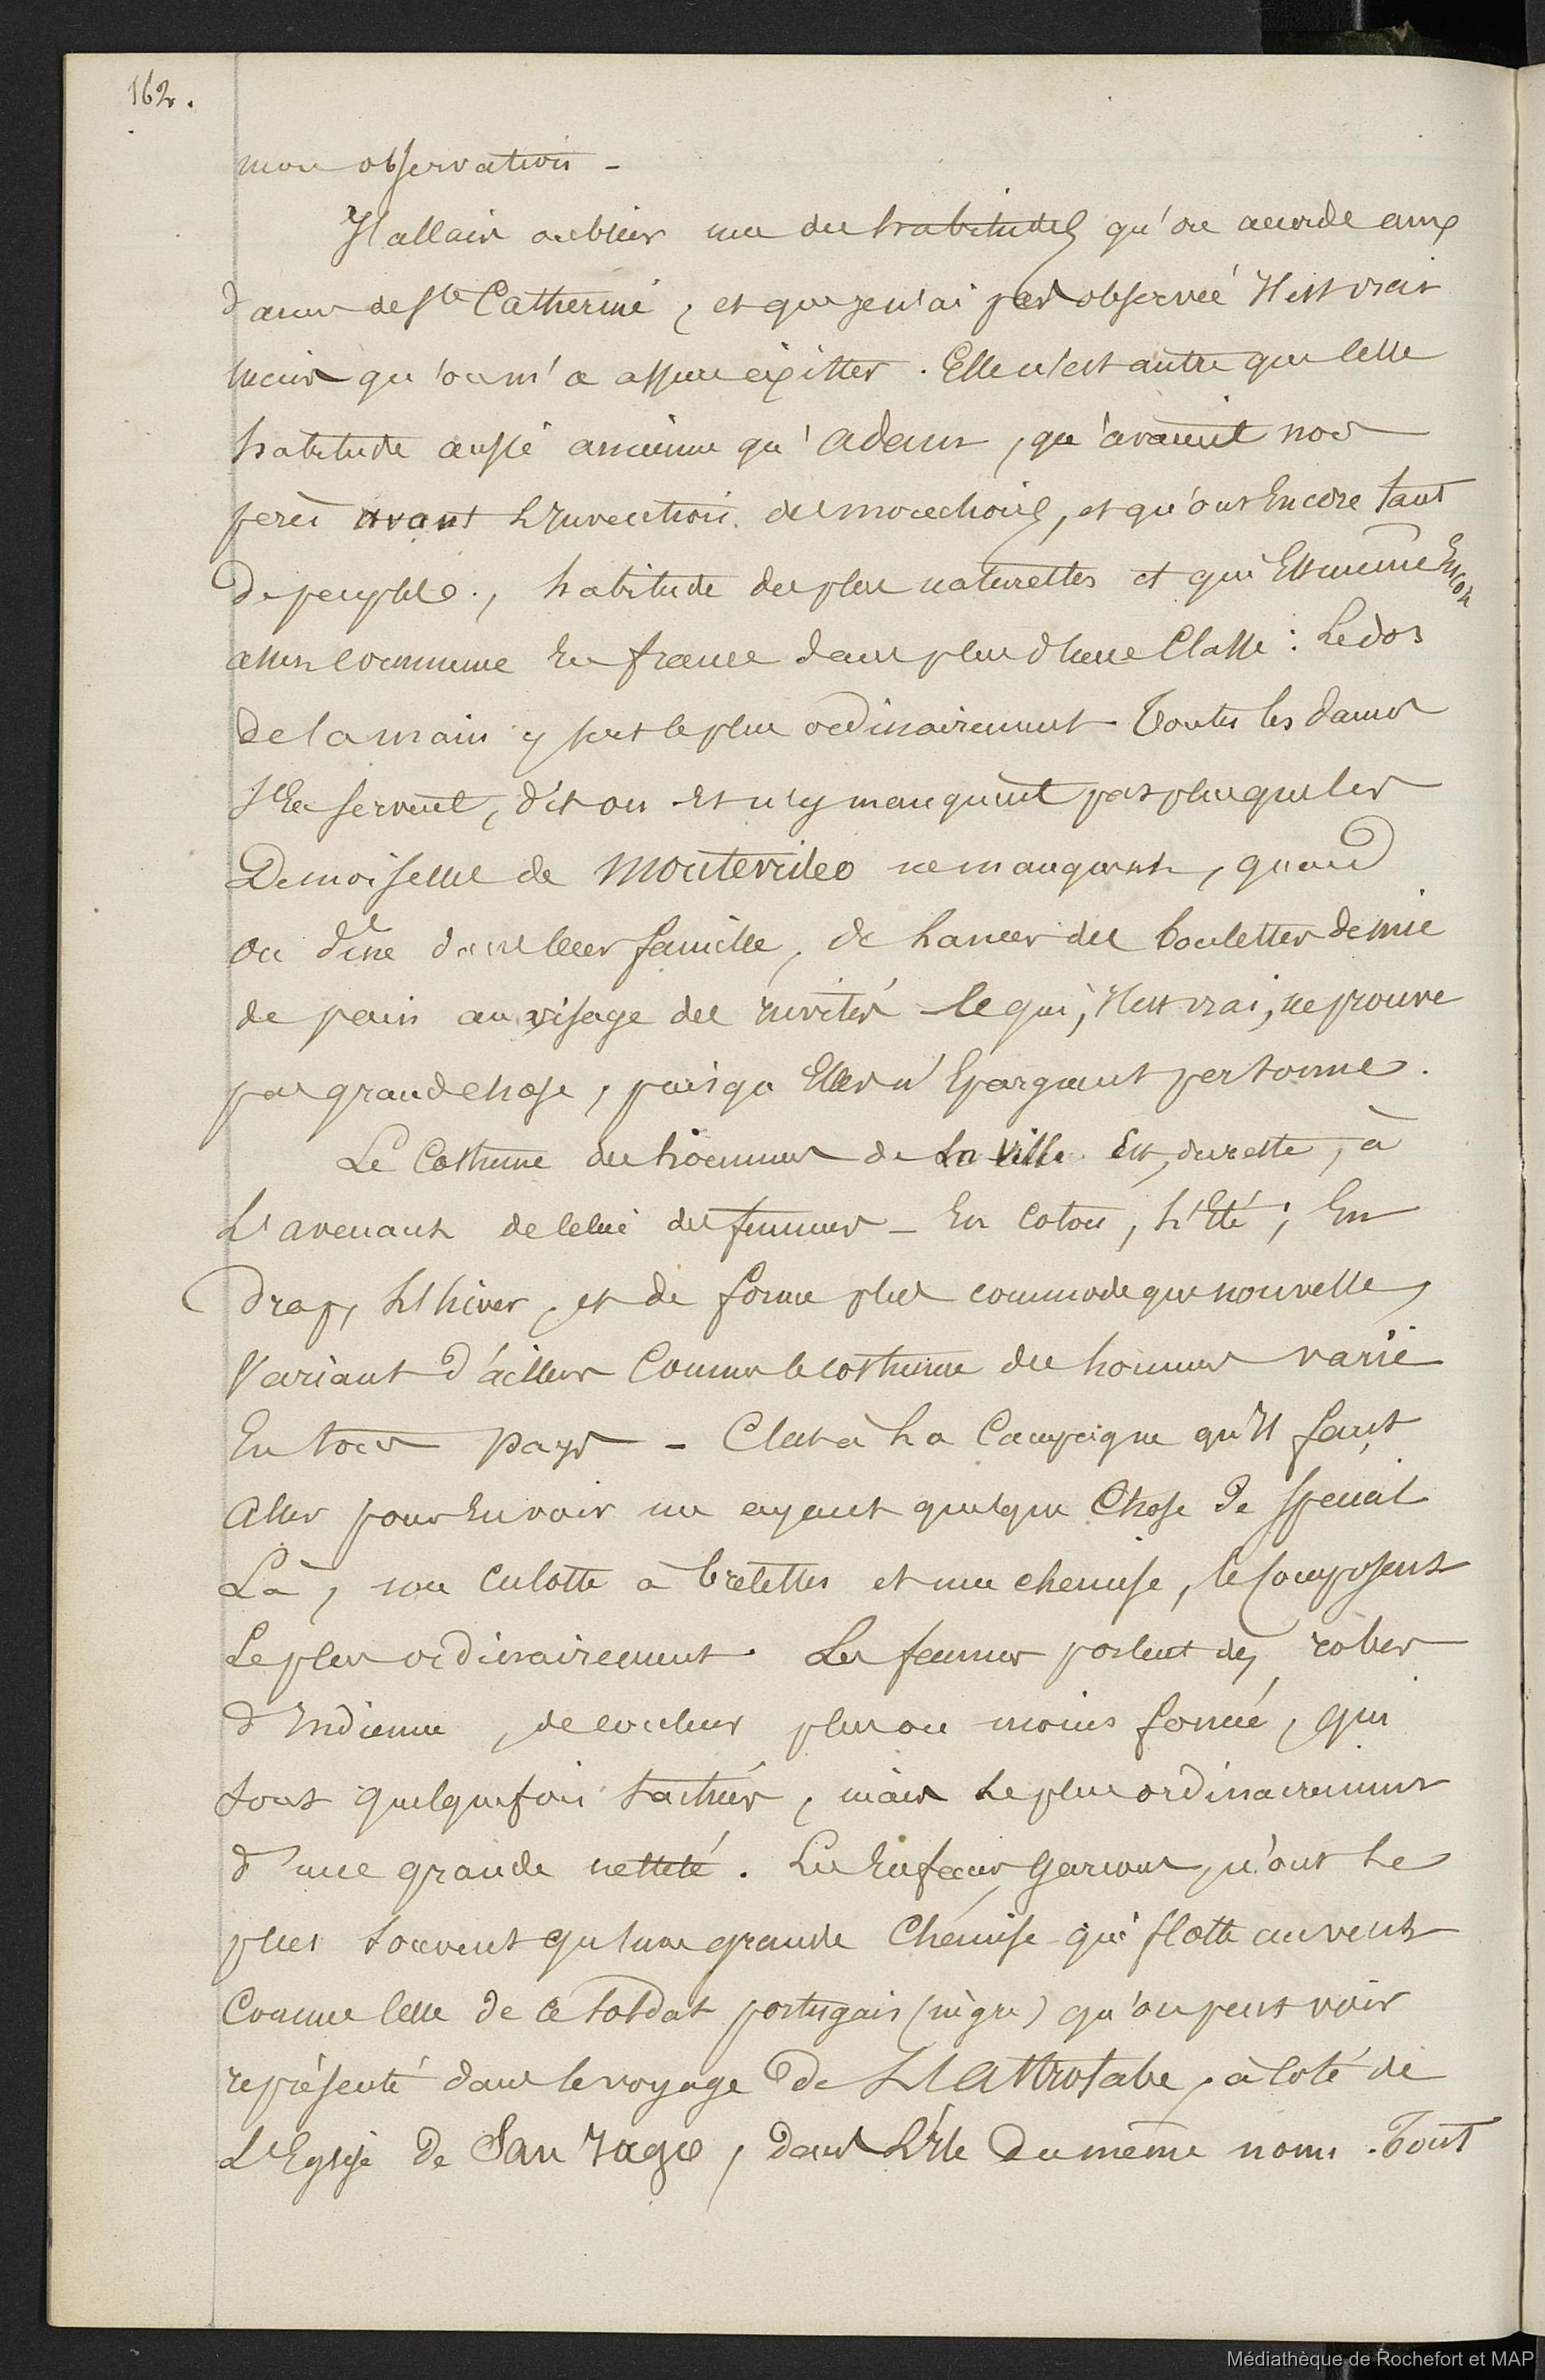 162.
mon observation -
J'allais oublier une des habitudes qu'on accorde aux
dames de Ste Catherine, et que je n'ai pas observée Il est vrai
mais qu'on m'a assuré exister. Elle n'est autre que celle
habitude aussi ancienne qu'Adam, qu'avaient nos
peres avant L'Invention des mouchoirs, et qu'ont Encore tant
de peuples, habitude des plus naturelles et qui Est même Encor
assez commune En france dans plus d'une Classe : Le dos
de la main y sert le plus ordinairement Toutes les dames
s'En servent, dit on Et n'y manquent pas plus que les
Demoiselles de Montevideo ne manquent, quand
on dine dans leur famille, de Lancer des boulettes de mie
de pain au visage des Invités - Ce qui, Il est vrai, ne prouve
pas grand chose, puisqu'Elles n'Epargnent personne.
Le Costume des hommes de La Ville Est, du reste, à
L'avenant de celui des femmes - En coton, L'Eté ; En
Drap, L'hiver, et de forme plus commode que nouvelle,
Variant d'ailleurs Comme le costume des hommes varie
En tous pays - C'est à La Campagne qu'Il faut
Aller pour En voir un ayant quelque Chose de special
Là, une culotte à bretelles et une chemise, le Composent
Le plus ordinairement. Les femmes portent des robes
d'Indienne, de couleur plus ou moins foncée, qui
sont quelquefois tachées, mais Le plus ordinairement
d'une grande netteté. Les Enfans Garcons, n'ont Le
plus souvent qu'une grande Chémise qui flotte au vent
Comme celle de ce soldat portugais (nègre) qu'on peut voir
représenté dans le voyage de L'Astrolabe, à coté de
L'Eglise de San Iago, dans L'Ile du même nom. Tout
Médiathèque de Rochefort et MAP